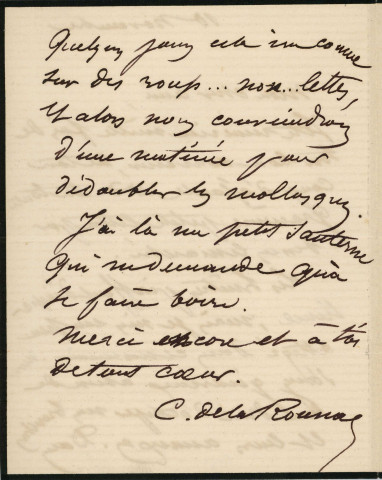 Quelques jours
sur des roup... non... lettes,
et alors nous conviendrons
d'une matinée pour
dédoubler les mollusques.
J'ai là un petit Sauterne
qui ne demande qu'à
se faire boire.
Merci encore et à toi
de tout cœur.
C. de la Rounat